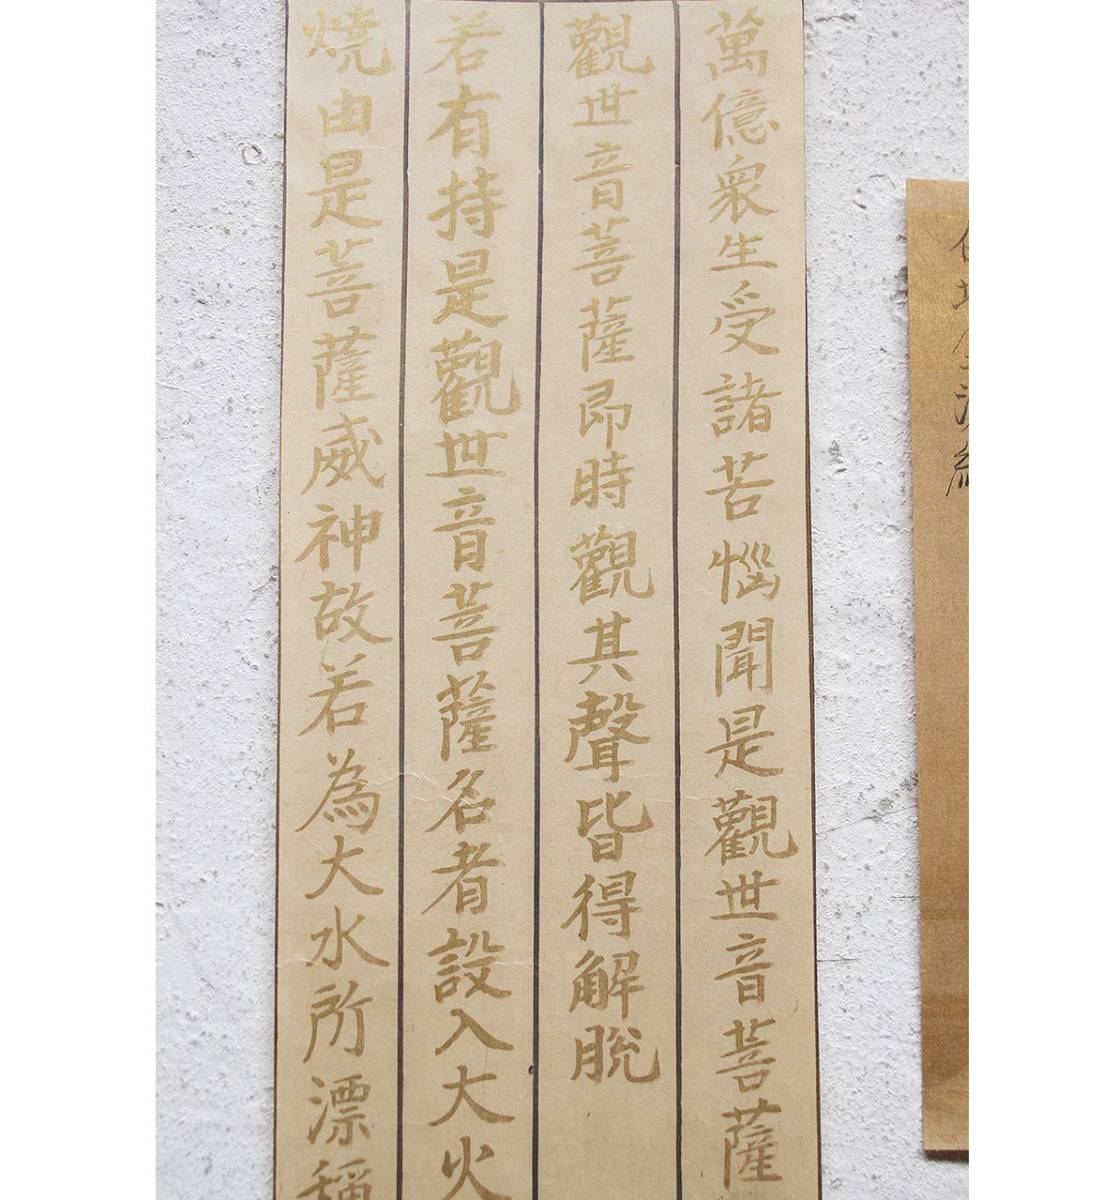 萬億衆生受諸苦惱聞是觀世音菩薩
觀世音菩薩即時觀其聲皆得解脫
若有持是觀世音菩薩名者設入大火
燒由是菩薩威神故若為大水所漂稱